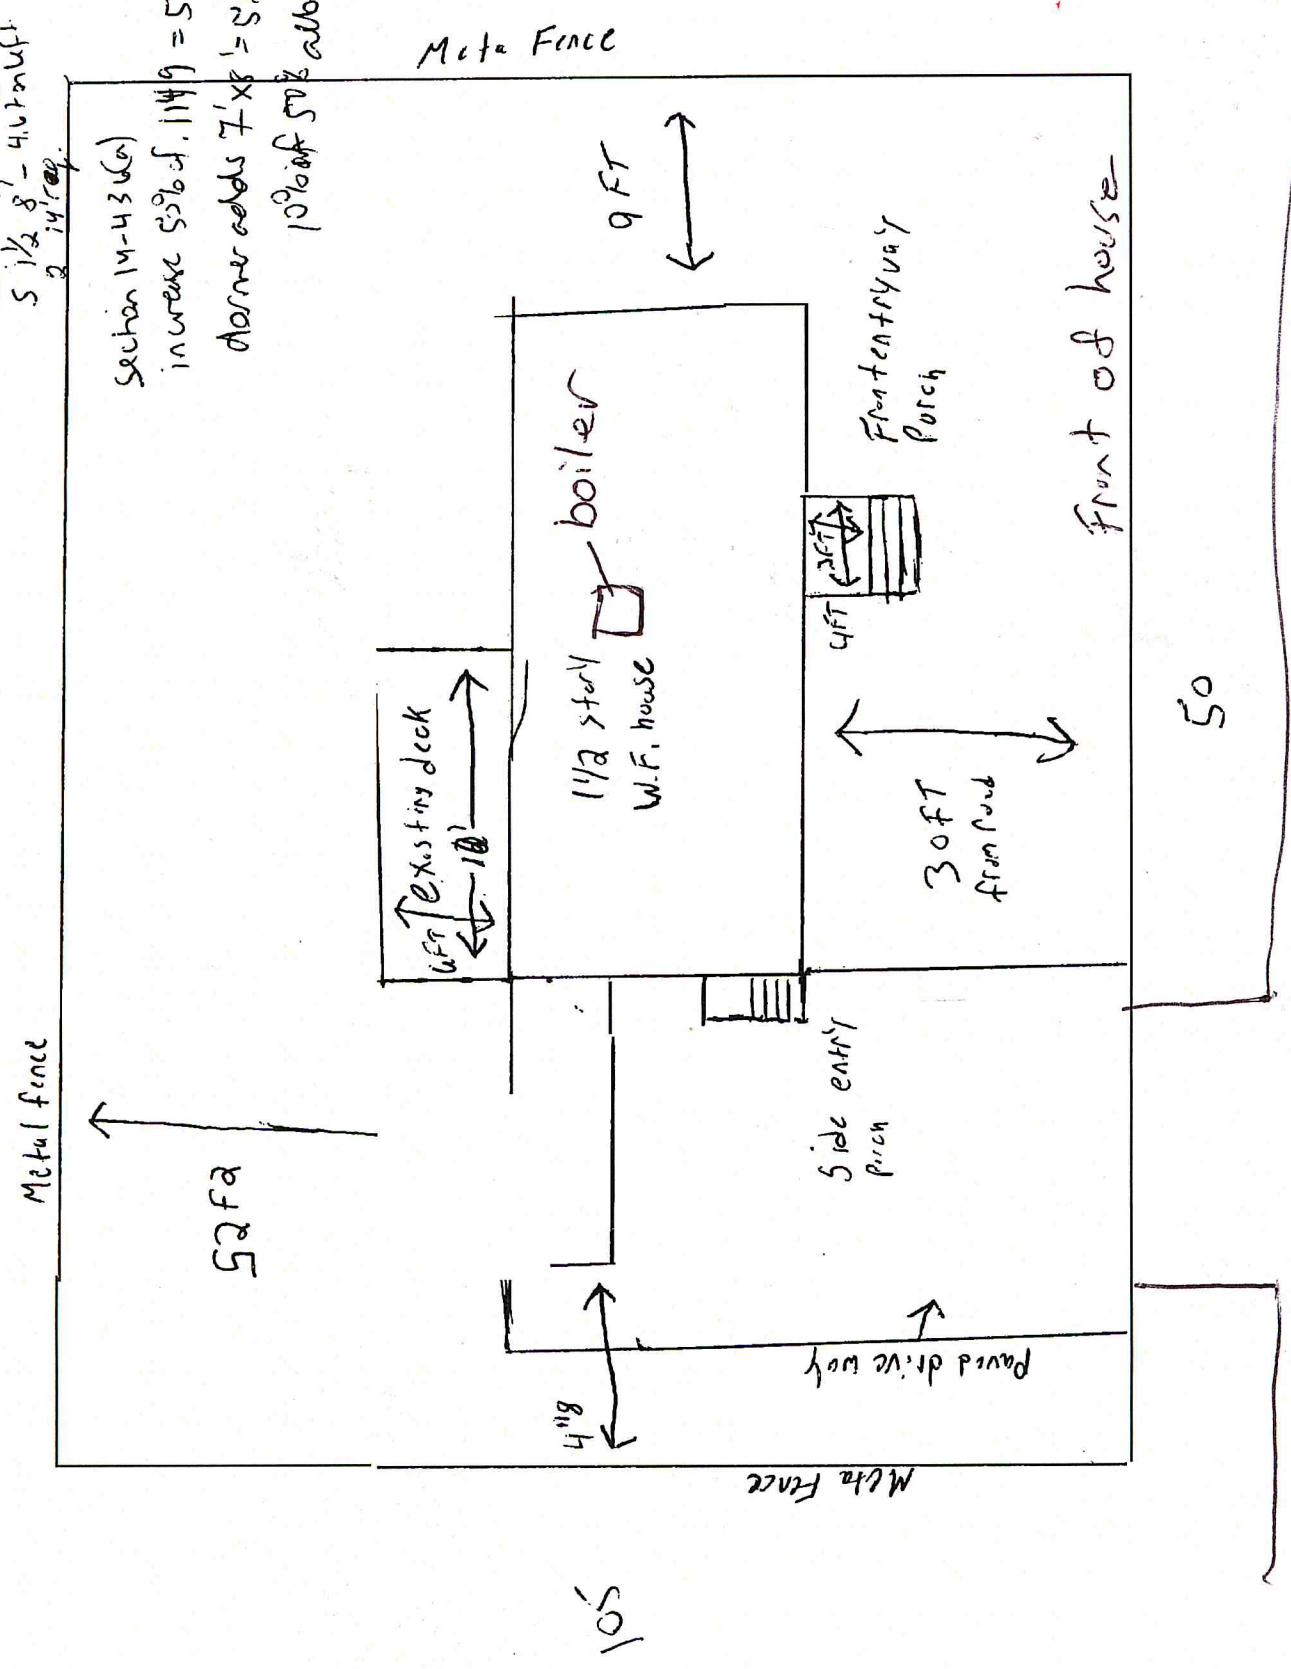 Meta Fence
S 1½ 8' - 4.6 ton left
2 14' req.
section 14-436(a)
increase 50% of 1149 = 5
dormer adds 7'x8' = 5
10% of 50%
9 FT
Front entryway
Porch
Front of house
boiler
1½ story
W.F. house
3FT
4FT
existing deck
6FT
30FT
from road
50
Metal fence
52F2
Side entry
porch
4"8
Paved drive way
Meta Fence
105'